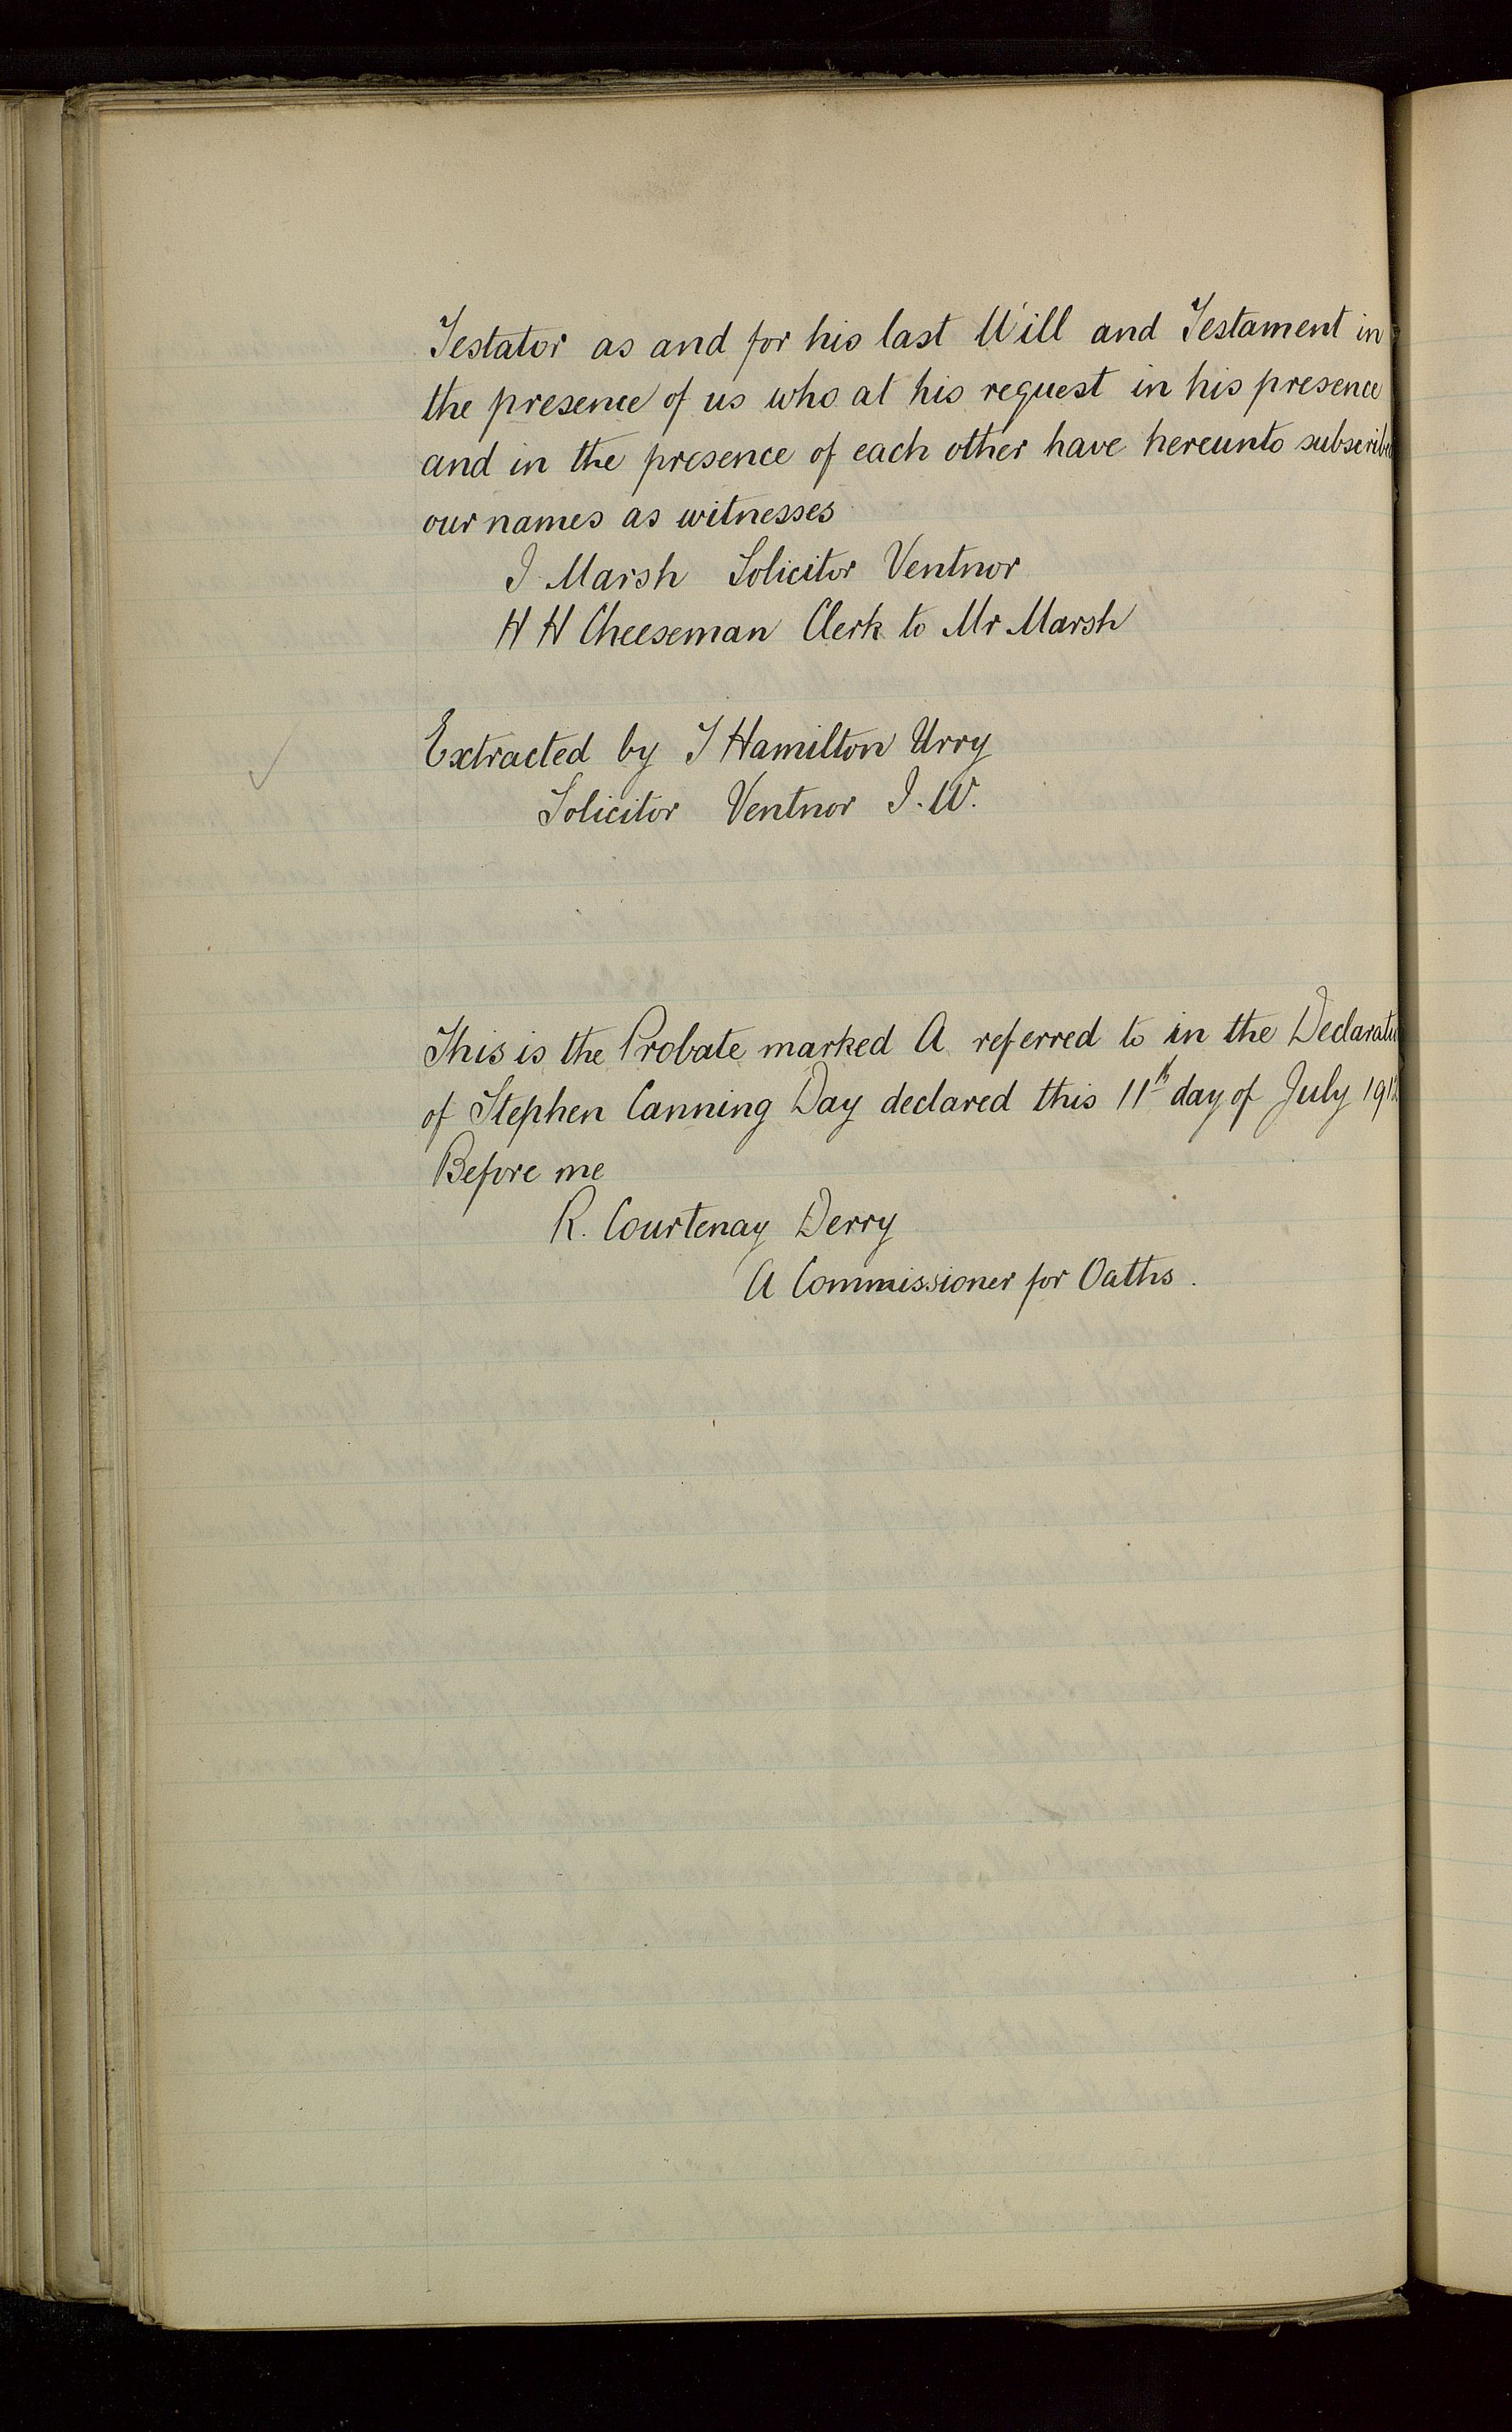 Testator as and for his last Will and Testament in
the presence of us who at his request in his presence
and in the presence of each other have hereunto
our names as witnesses
J Marsh Solicitor Ventnor
H H Cheeseman Clerk to Mr Marsh
Extracted by J Hamilton Urry
Solicitor Ventnor I. W.
This is the Probate marked A referred to in the
of Stephen Canning Day declared this 11th day of July
Before me
R. Courtenay Derry
A Commissioner for Oaths.